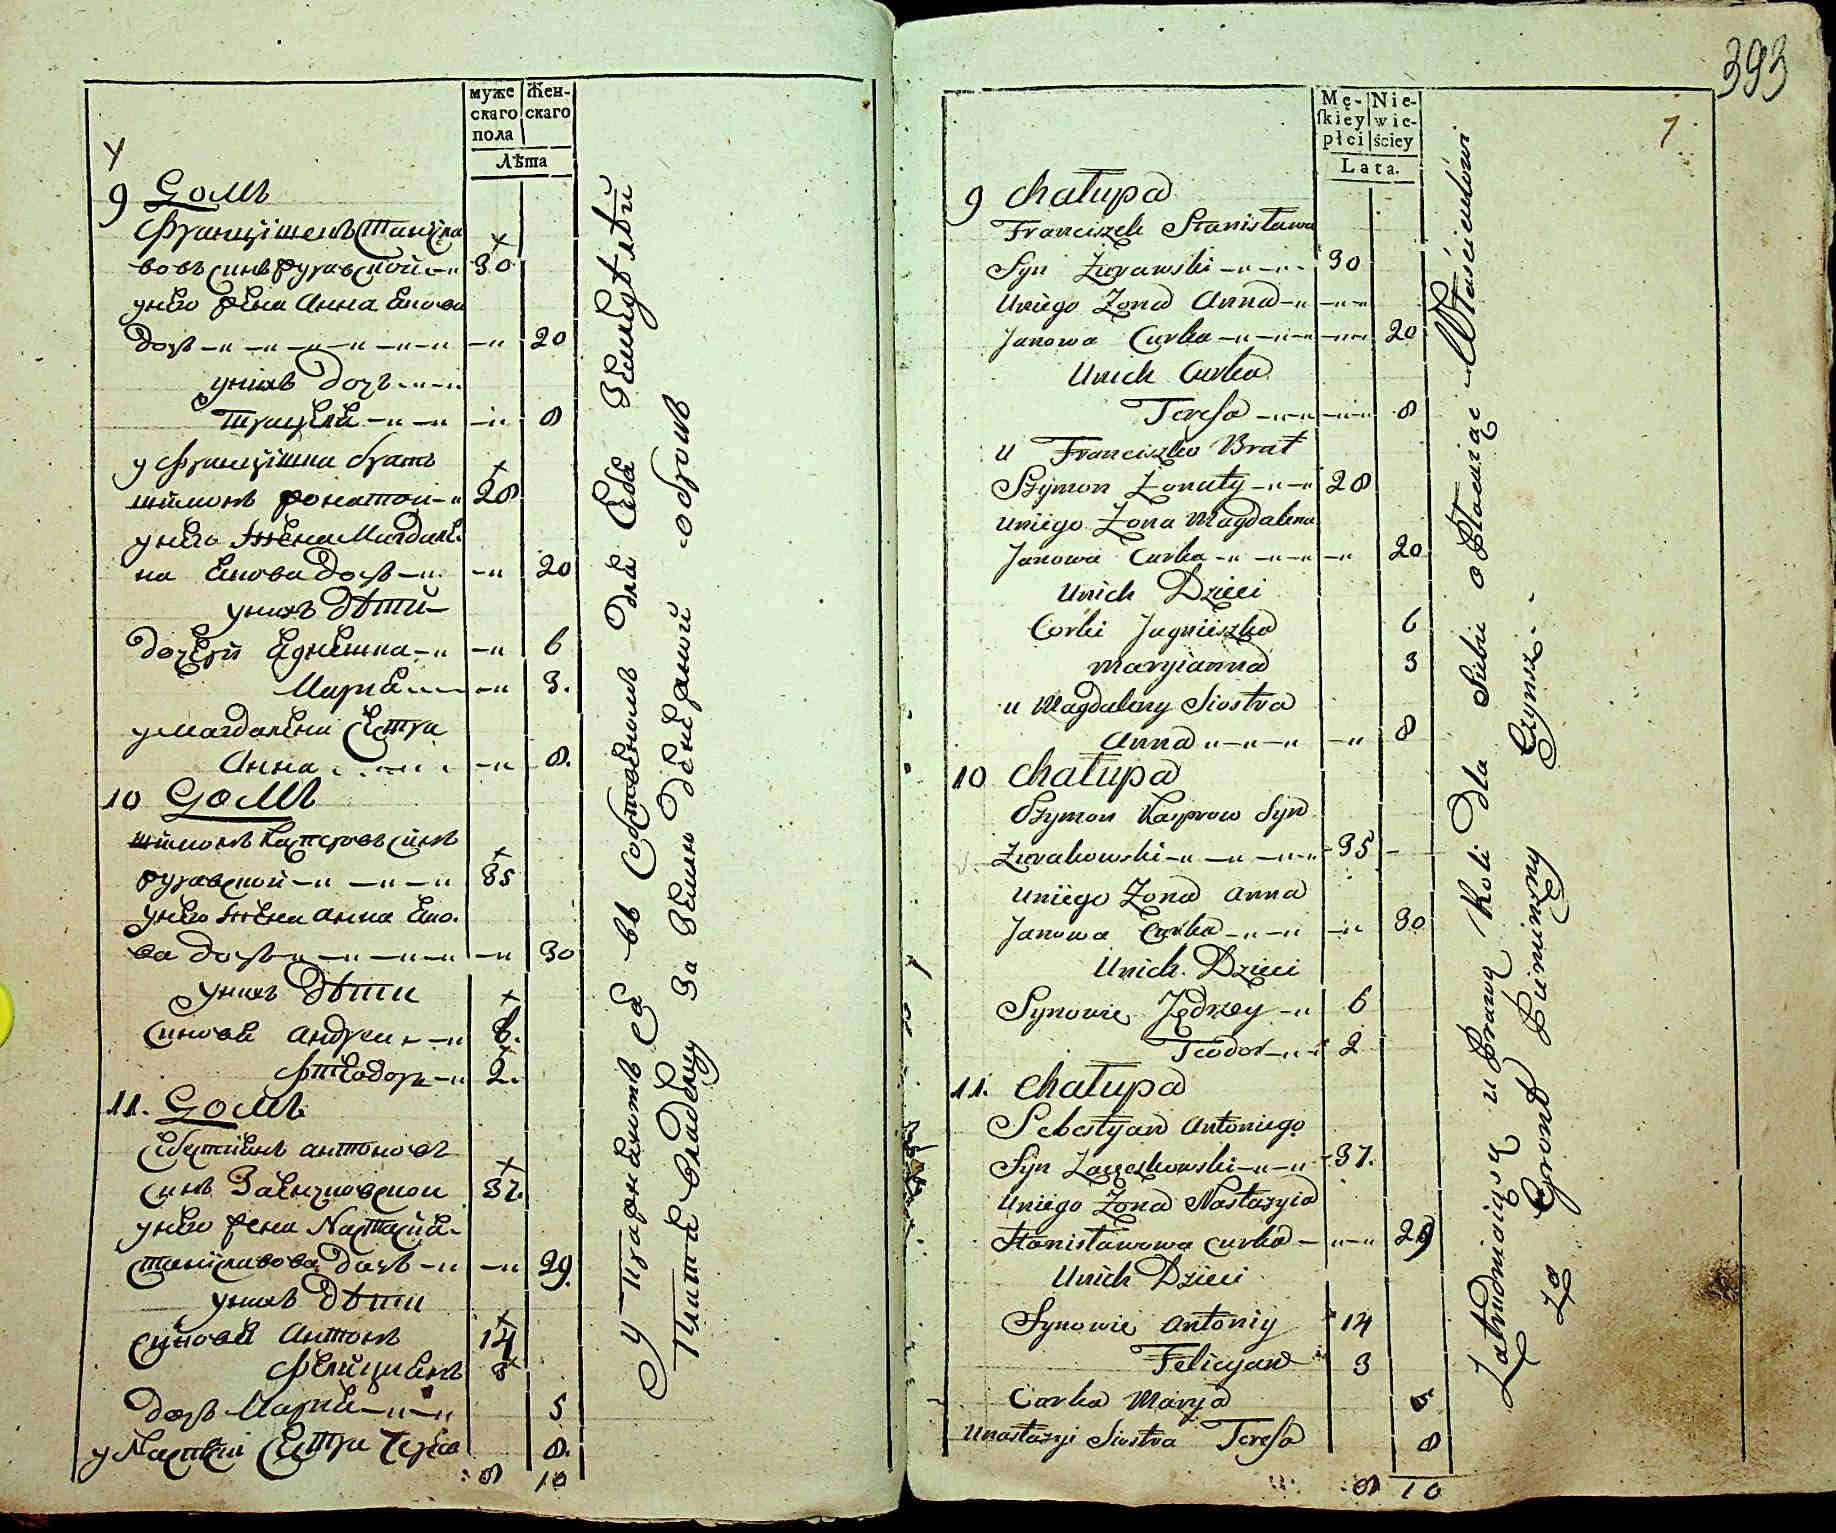 муже
скаго
пола
Жен-
скаго
Лѣта
9 Домъ
Францишекъ Станисла
вовъ синъ Журавской 30
у него жена Анна Янова
дочь 20
у нихъ дочь
Терезия 8
у Францишка братъ
Шимонъ женатой 28
у него жена Магдале
на Янова дочь 20
у нихъ дѣти
дочери Егнешка 6
Мария 3.
у Магдалени сестра
Анна 8.
10 Домъ
Шимонъ Касперовъ синъ
Журавской 35
у него жена Анна Яно.
ва дочь 30
у нихъ дѣти
синовя Андрей 6.
Фтеодоръ 2.
11. Домъ
Себестиянъ Антоновъ
синъ Заенчковской 37.
у него жена Настасия
Станиславова дочь 29.
у нихъ дѣти
синовя Антонъ 14
Фелициянъ 3
дочь Мария 5
у Настасии сестра Тереза 8.
8 10
Упражняютъ ся въ Собственномъ для Себя Земледѣлїи
Платя Владелцу За Землю денежный оброкъ
393
7
Mę-
ſkiey
płci
Nie-
wie-
ściey
Lata.
9 Chałupa
Franciszek Stanisława
Syn Żurawski 30
Uniego Zona Anna
Janowa Curka 20
Unich Curka
Teresa 8
u Franciszka Brat
Szymon Zonaty 28
uniego Zona Magdalena
Janowa Curka 20
Unich Dzieci
Corki Jagnieszka 6
Maryianna 3
u Magdaleny Siostra
Anna 8
10 Chałupa
Szymon Kasprow Syn
Zurakowski 35
uniego Zona Anna
Janowa Curka 30
Unich Dzieci
Synowie Jędrzey 6
Teodor 2
11. Chałupa
Sebestyan Antoniego
Syn Zaączkowski 37.
Uniego Zona Nastazyia
Stanisławowa Curka 29
Unich Dzieci
Synowie Antoniy 14
Felicyan 3
Corka Marya 5
Unastazyi Siostra Teresa 8
8 10
Zatrudniaią się uprawą Roli Dla Siebie opłacaiąc Włascicielowi
Za Grunt Pieniężny Czynsz.